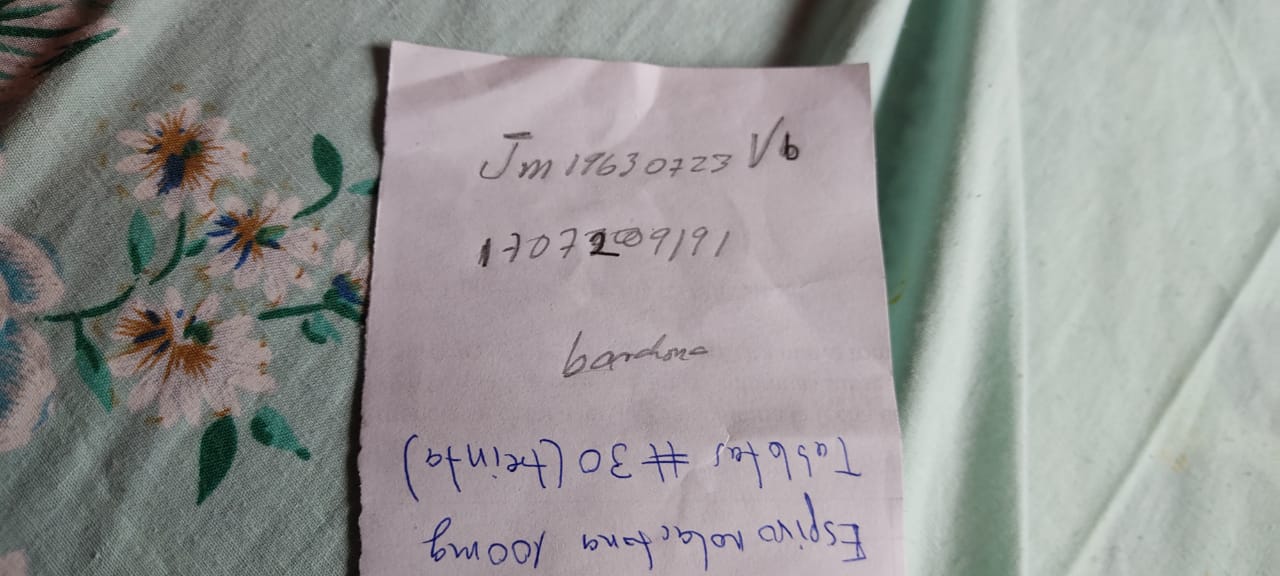 Jm19630723Vb
1707209191
Espironolactona 100mg
Tabletas #30 (treinta)